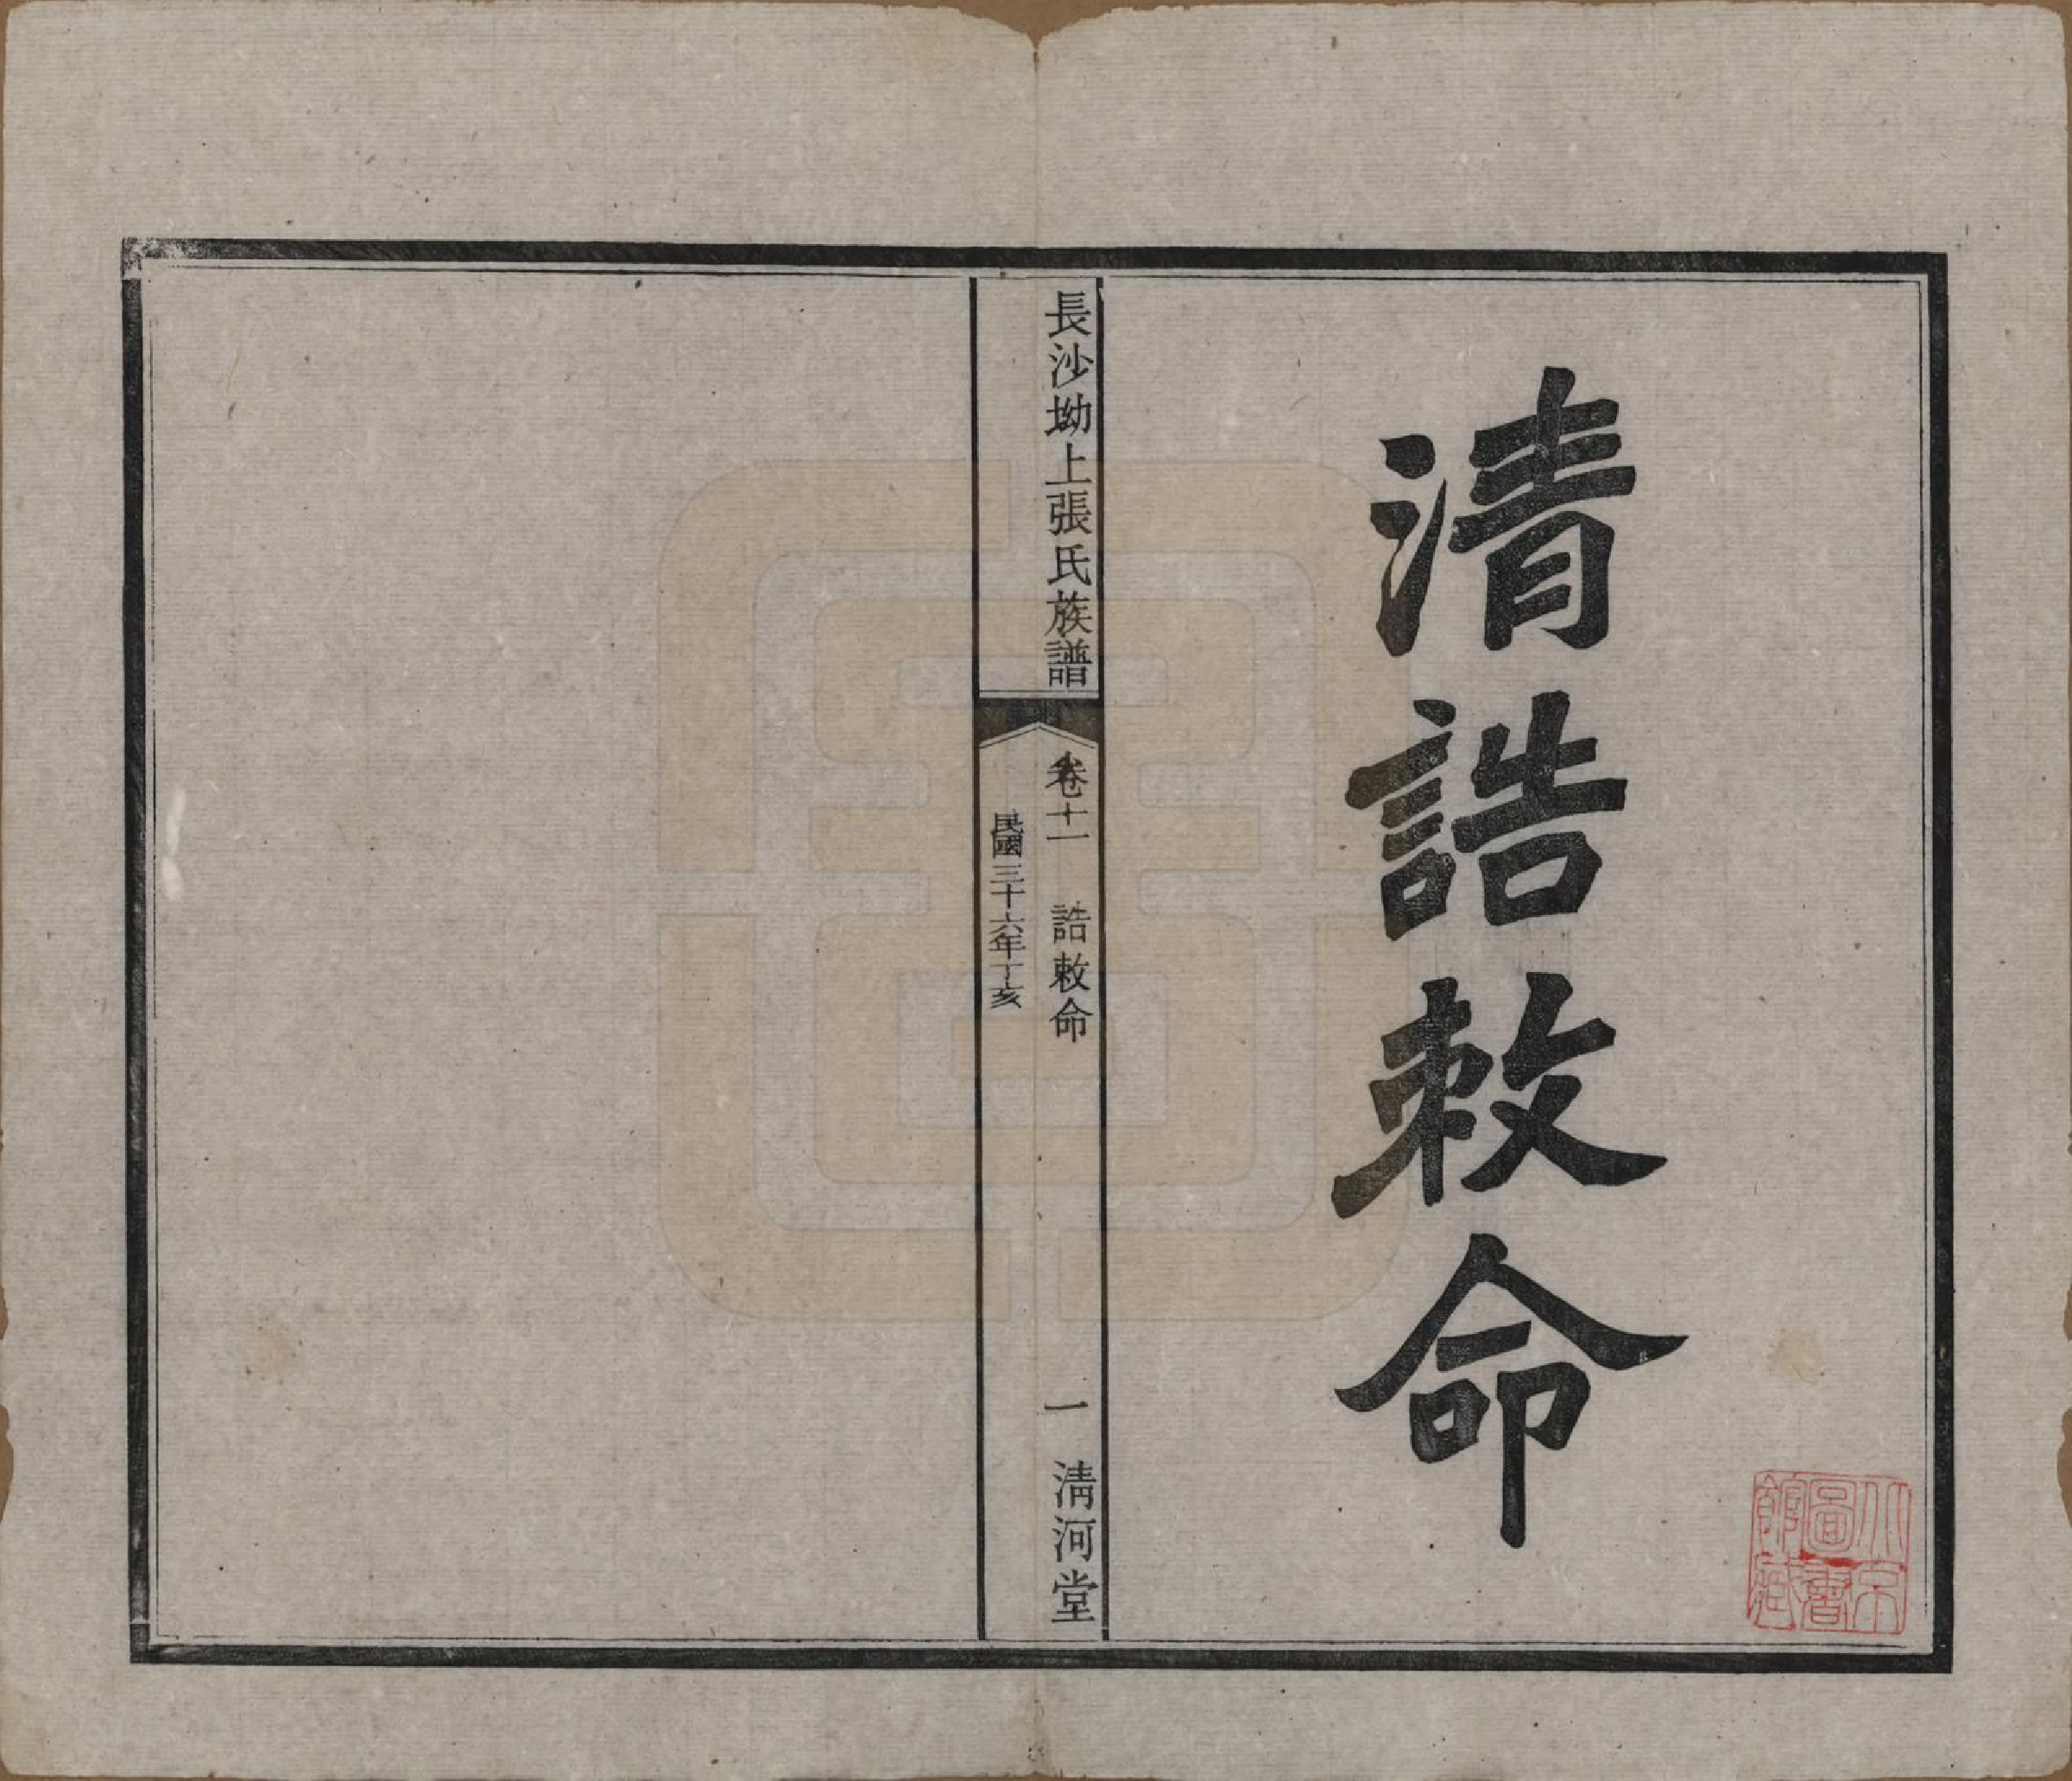 清誥敕命
長沙坳上張氏族譜
卷十一 誥敕命
一 清河堂
民國三十六年丁亥
北京
圖書
館藏